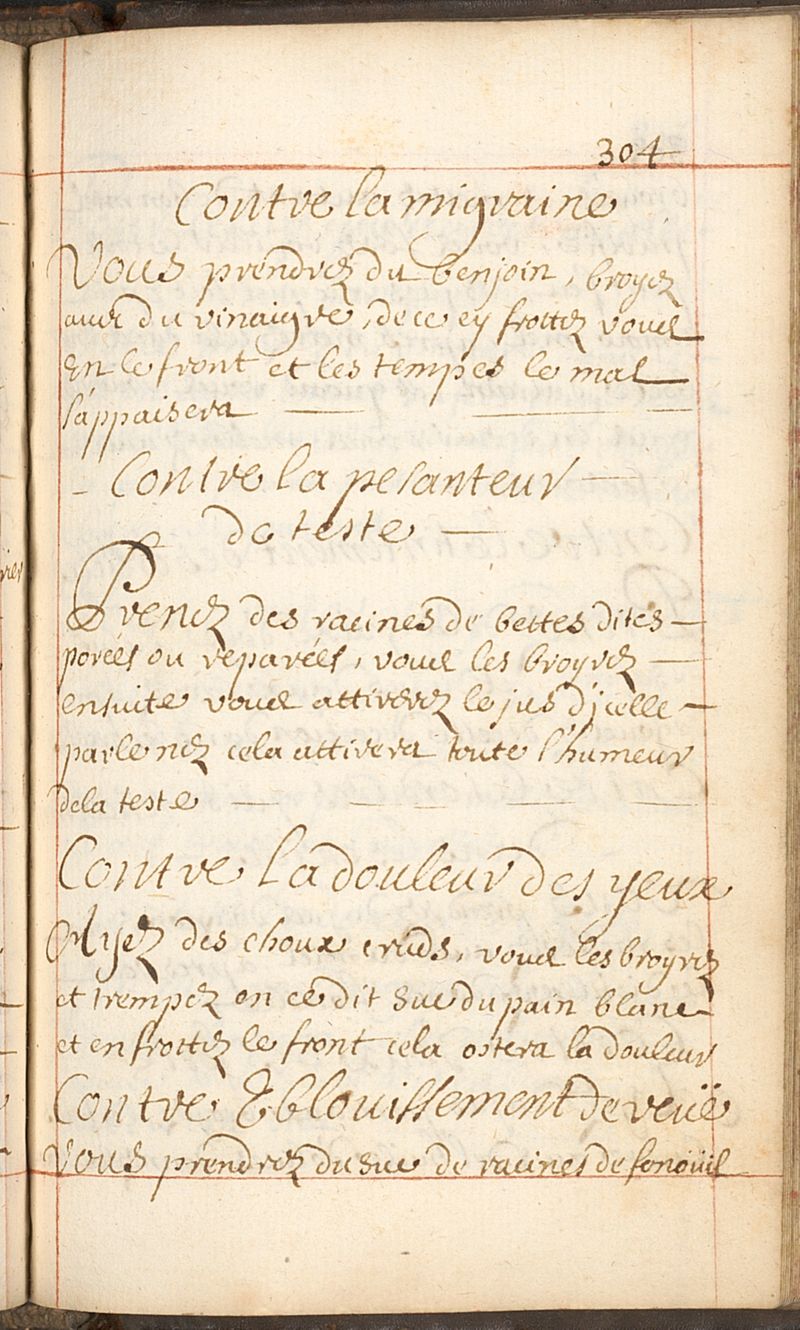 304
Contre la migraine
Vous prendrez du benjoin, broyez
avec du vinaigre, de ce ey frottez vous
En le front et les tempes le mal
s'appaisera
- Contre la pesanteur
de teste
Prenez des racines de bettes dites
porées ou reparées, vous les broyrez
ensuite vous attirerez le jus d'jcelle
par le nez cela attirera toute l'humeur
de la teste
Contre la douleur des yeux
Ayez des choux cruds, vous les broyrez
et trempez en ce dit suc du pain blanc
et en frottez le front cela ostera la douleur
Contre Eblouissement de veüe
Vous prendrez du suc de racines de fenoüil